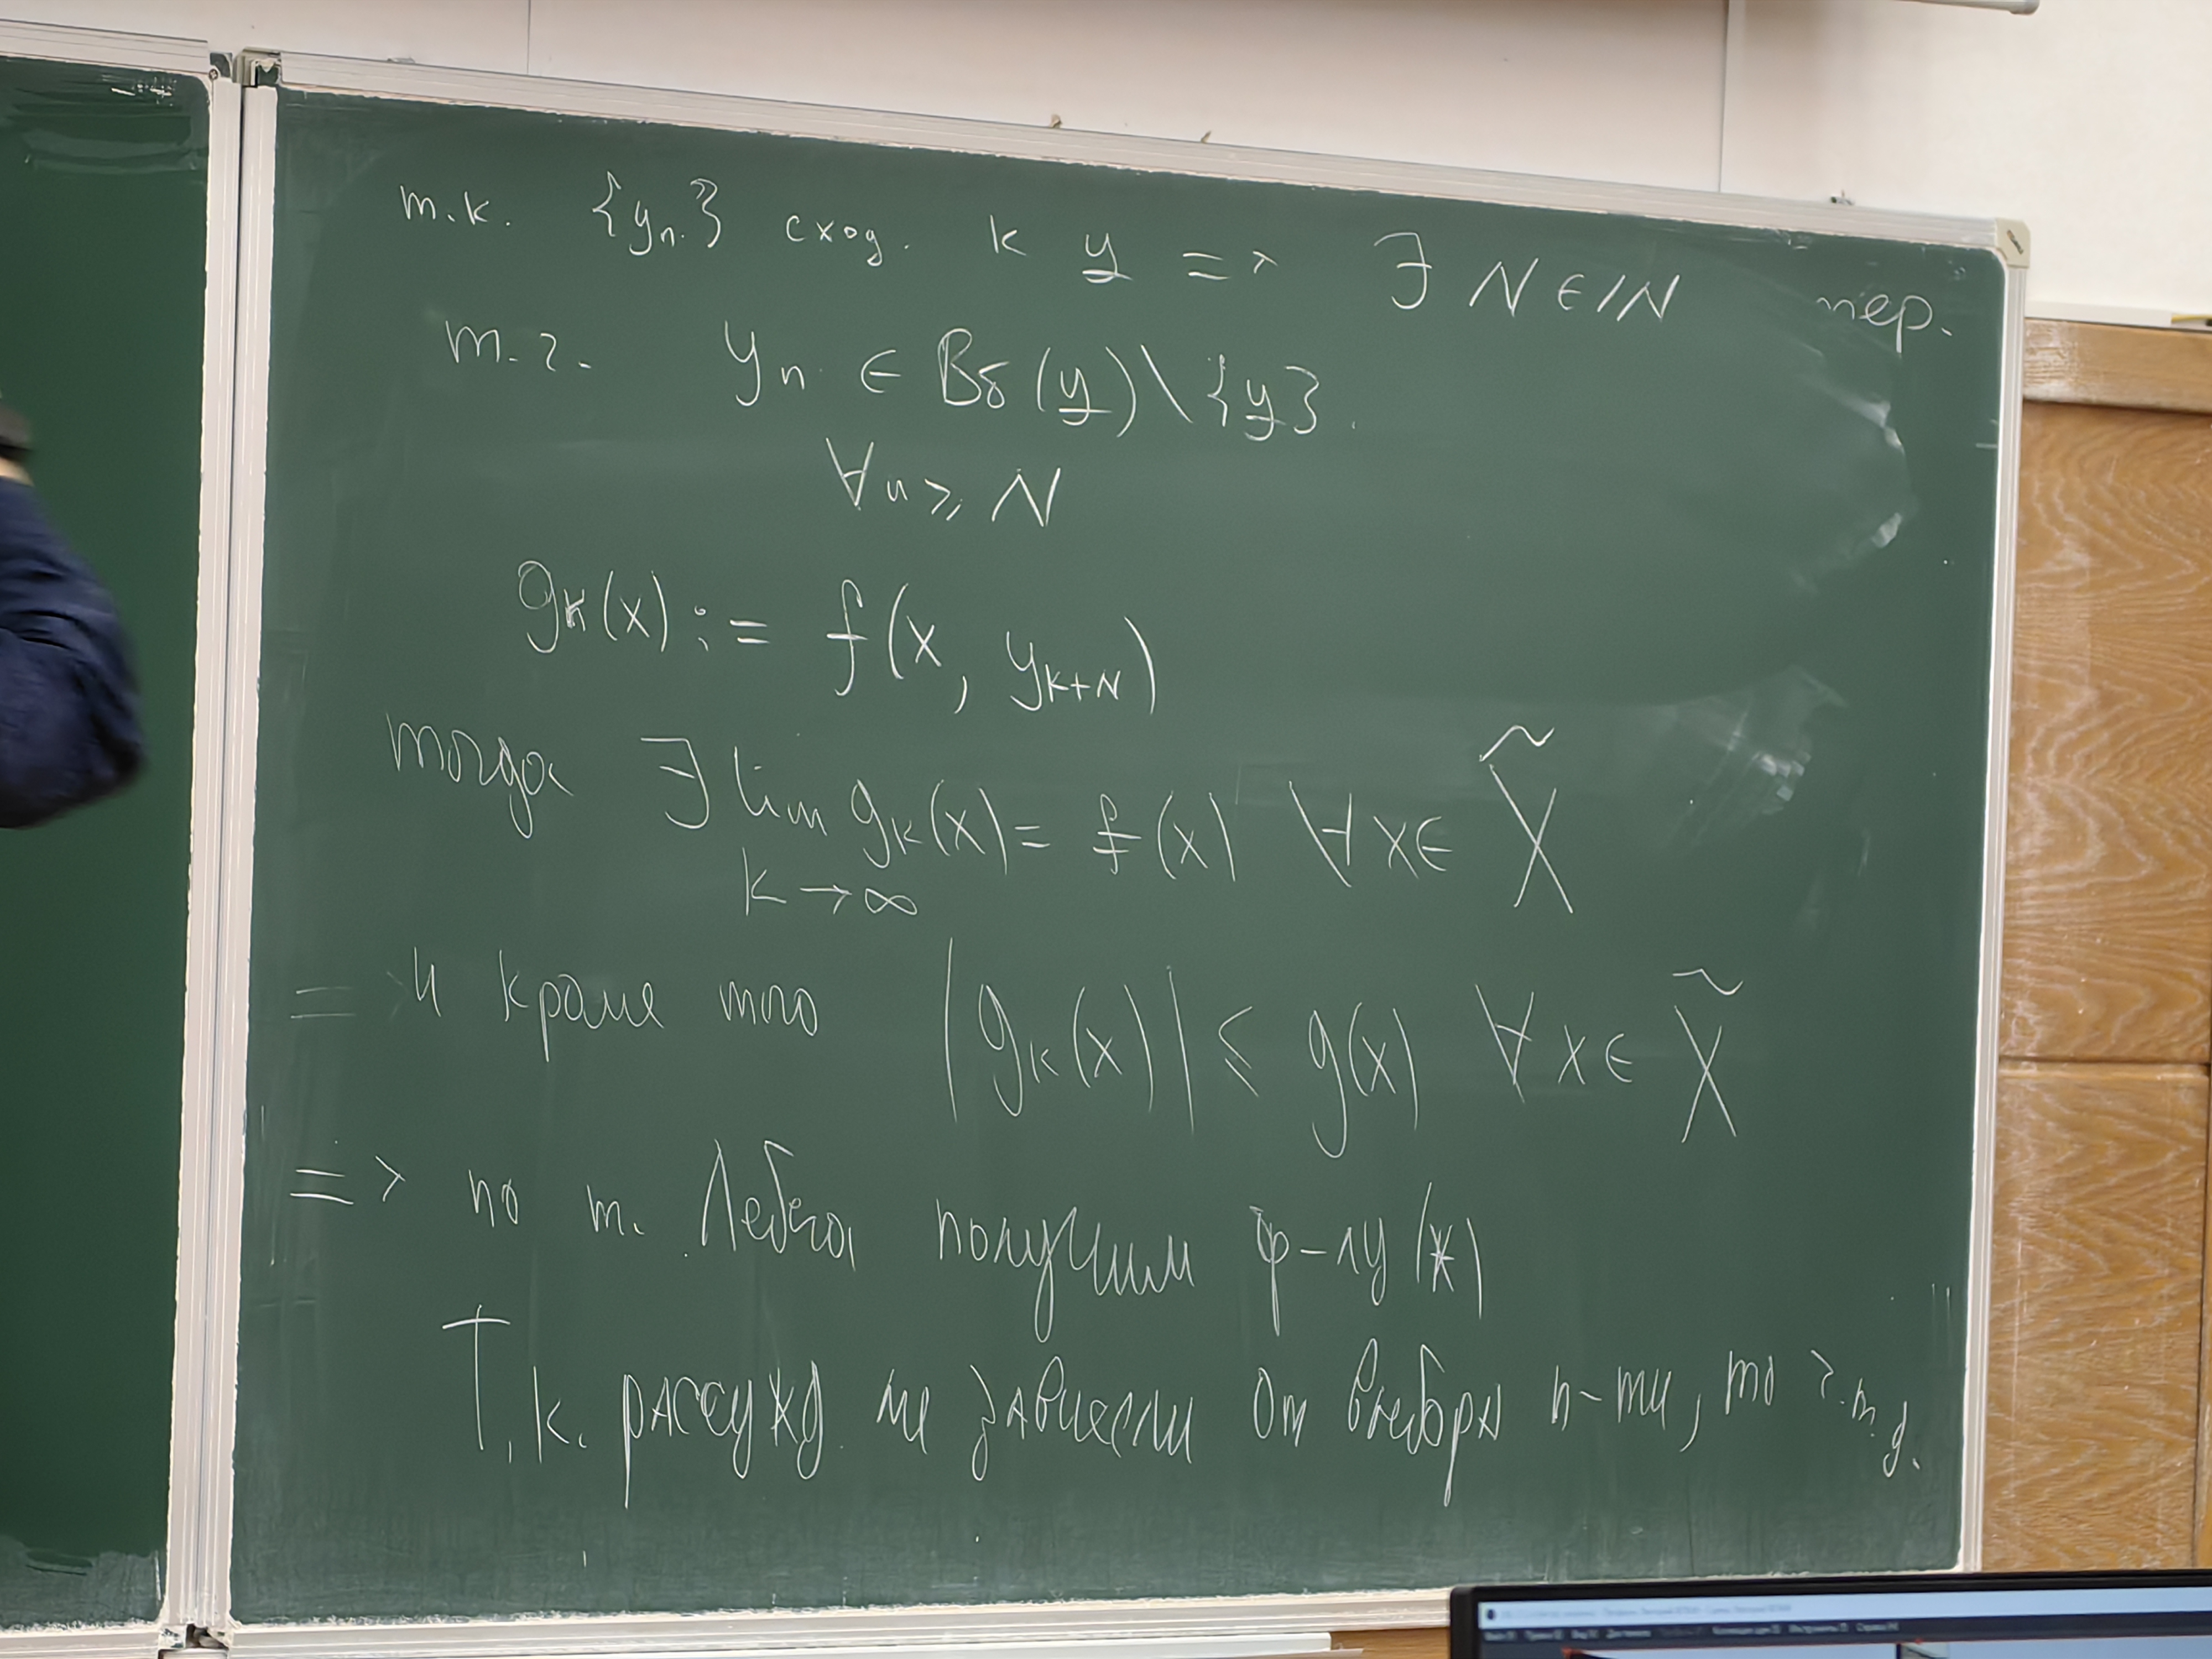 т.к. {yₙ} сход. к y => ∃ N ∈ ℕ
пер.
т.ч. yₙ ∈ Bδ(y)\{y}.
∀n ≥ N
gₖ(x) := f(x, yₖ₊N)
тогда ∃ lim gₖ(x) = f(x) ∀x∈ X̃
k→∞
=> и кроме того |gₖ(x)| ≤ g(x) ∀ x ∈ X̃
=> по т. Лебега получим ф-лу (*)
Т.к. рассужд. не зависели от выбора п-ти, то ч.т.д.